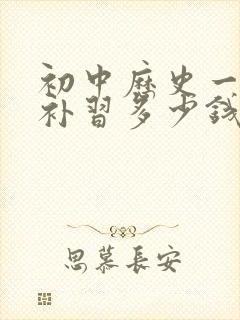 初中历史一
补习多少钱
思慕长安